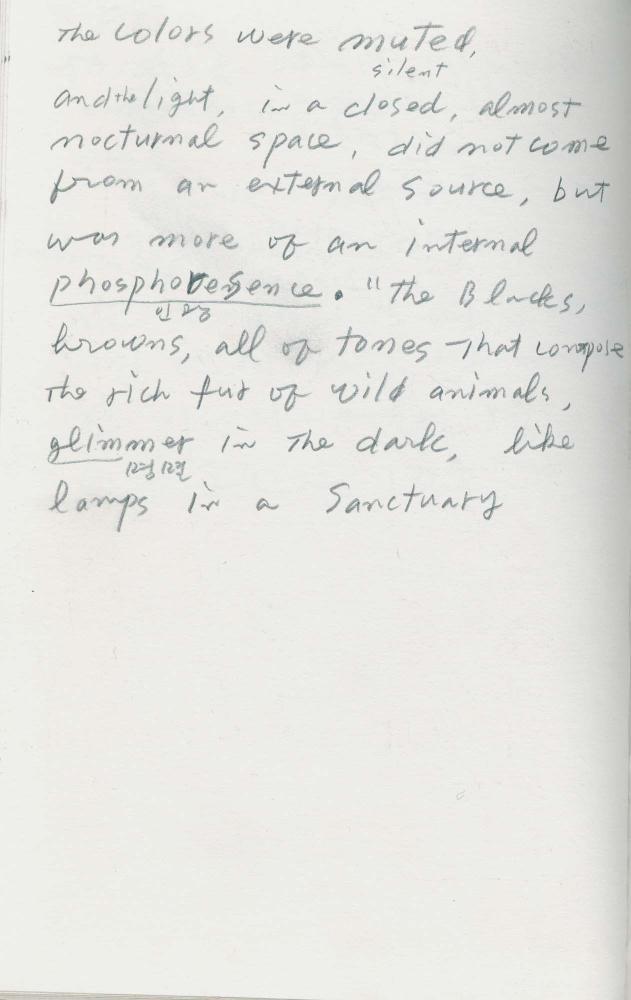 The colors were muted,
silent
and the light, in a closed, almost
nocturnal space, did not come
from an external source, but
was more of an internal
phosphoresence. "The Blacks,
인광
browns, all of tones that compose
the rich fur of wild animals,
glimmer in the dark, like
lamps in a Sanctuary